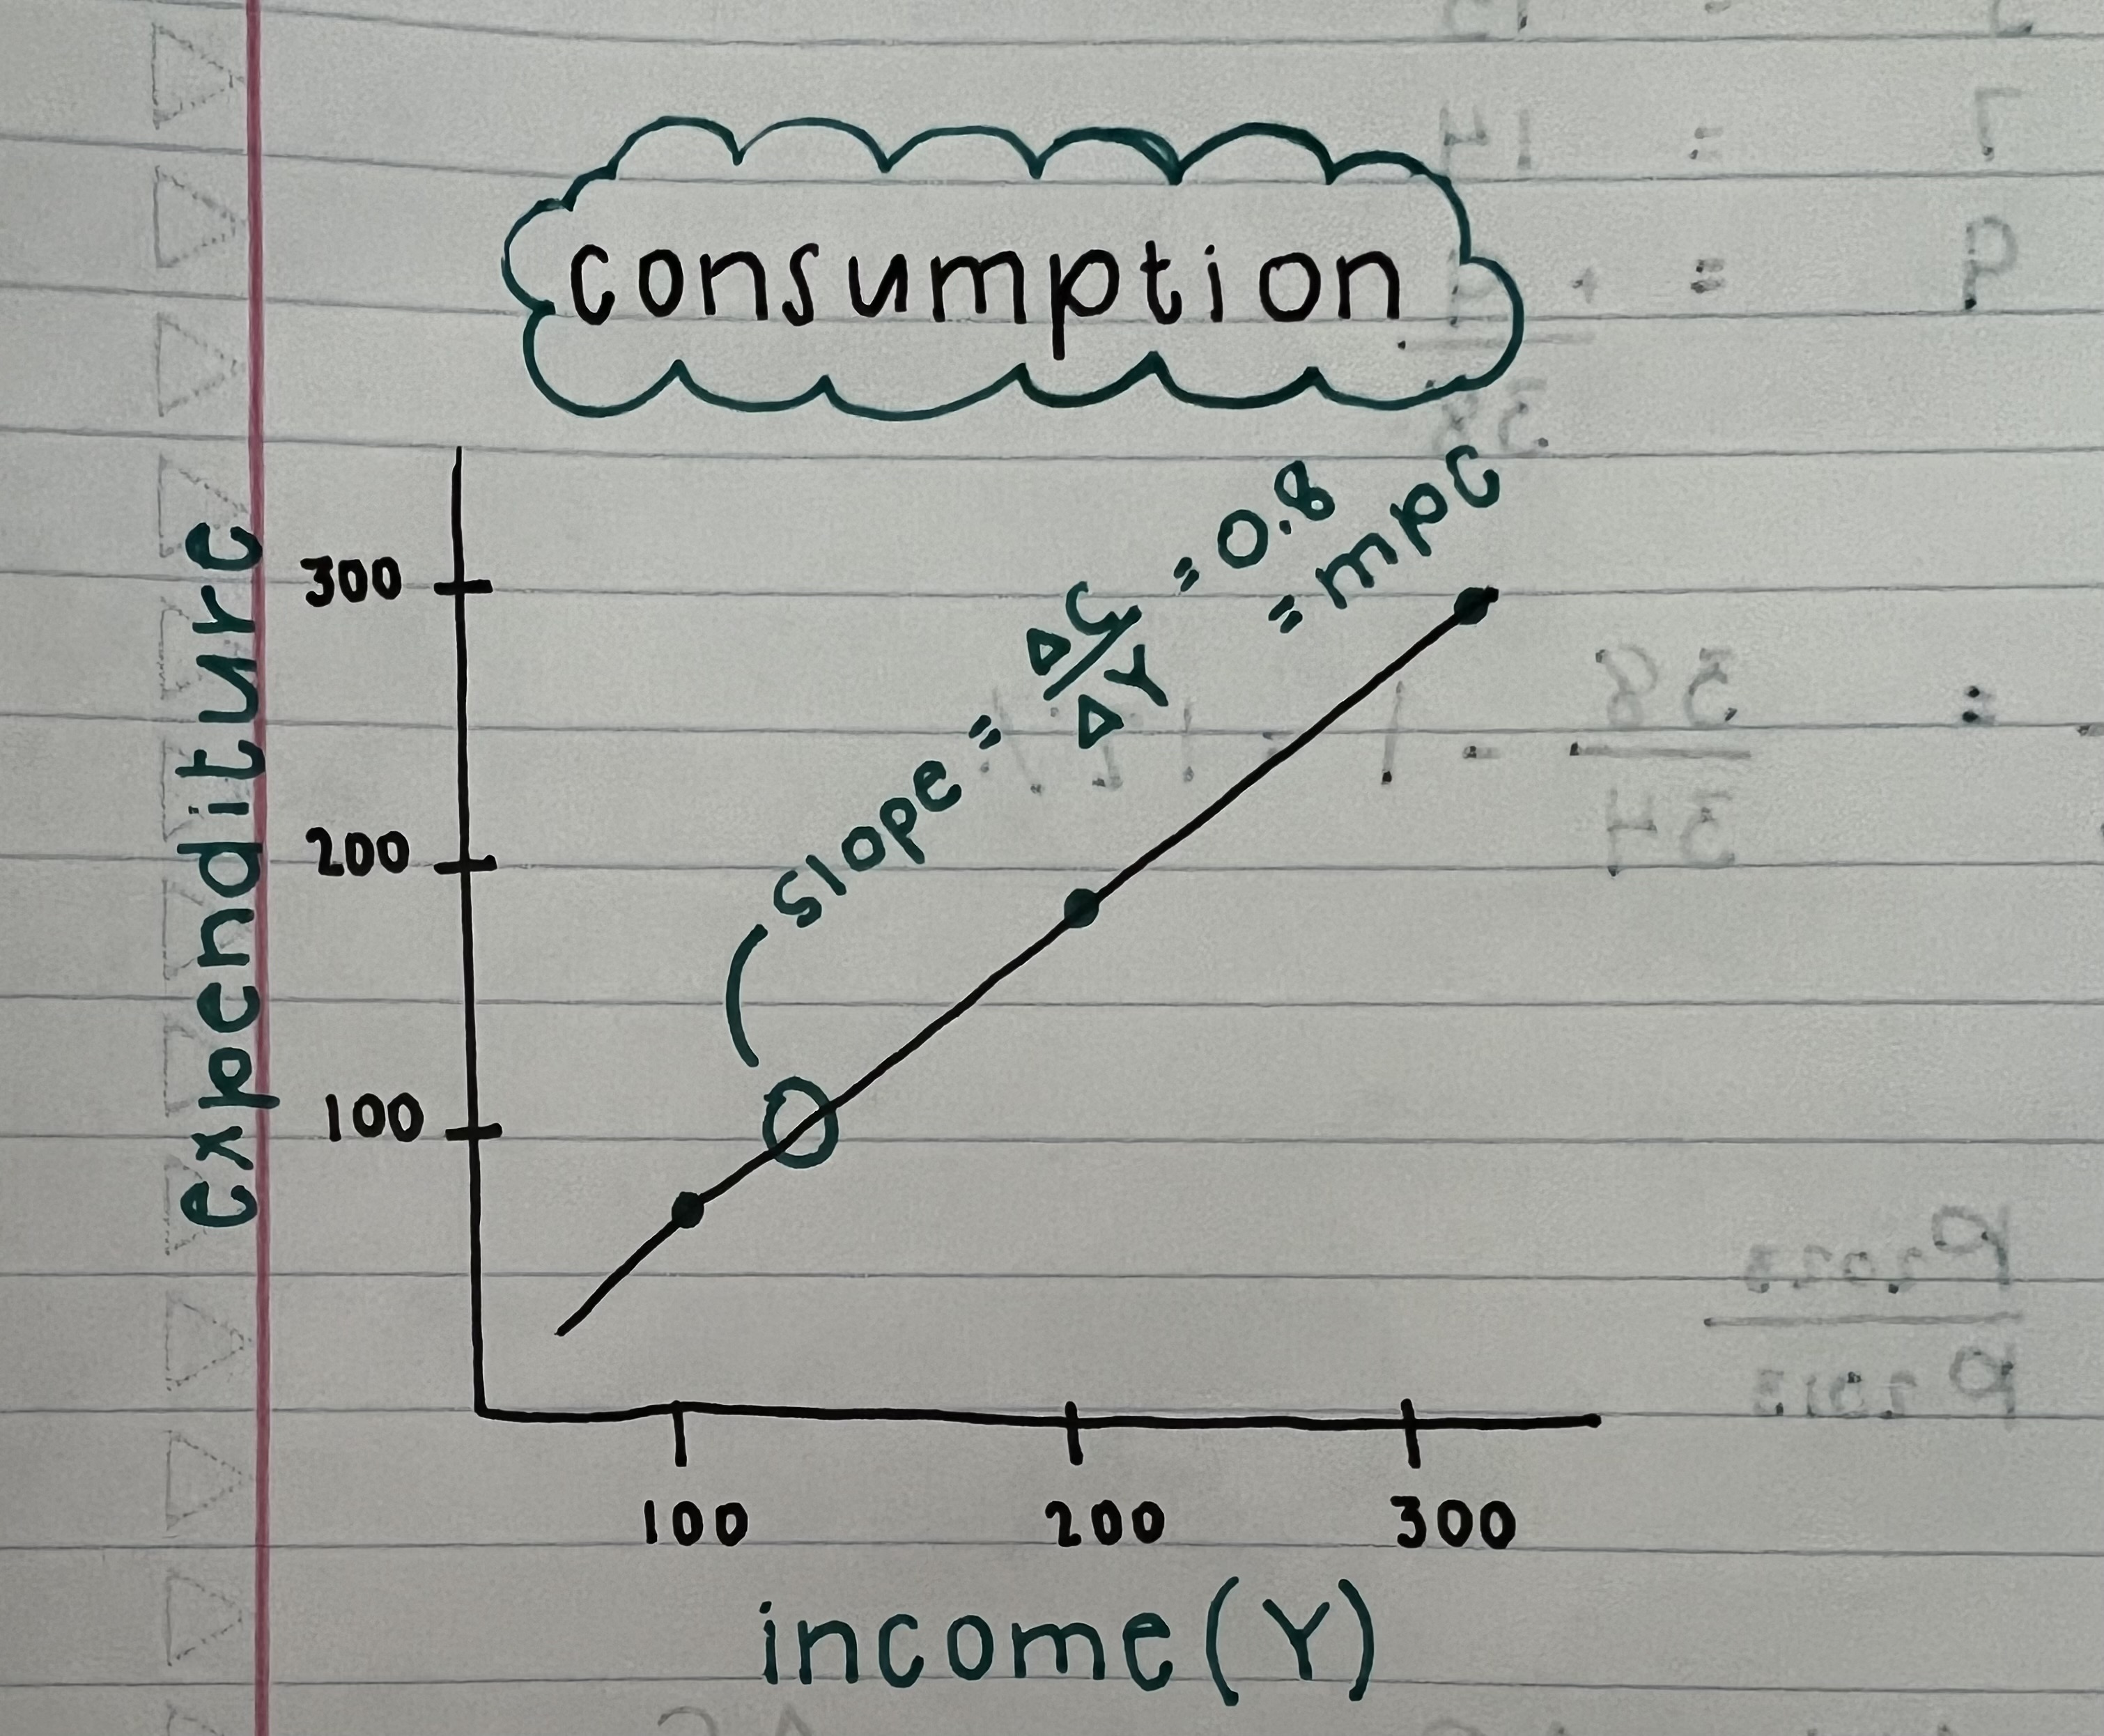 consumption
expenditure
300
200
100
slope = ΔC/ΔY = 0.8
= mpc
100
200
300
income (Y)